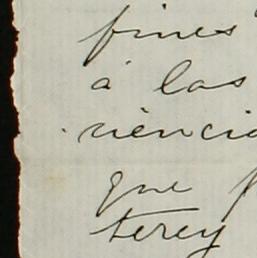 fines
á las
riencia
que
terey